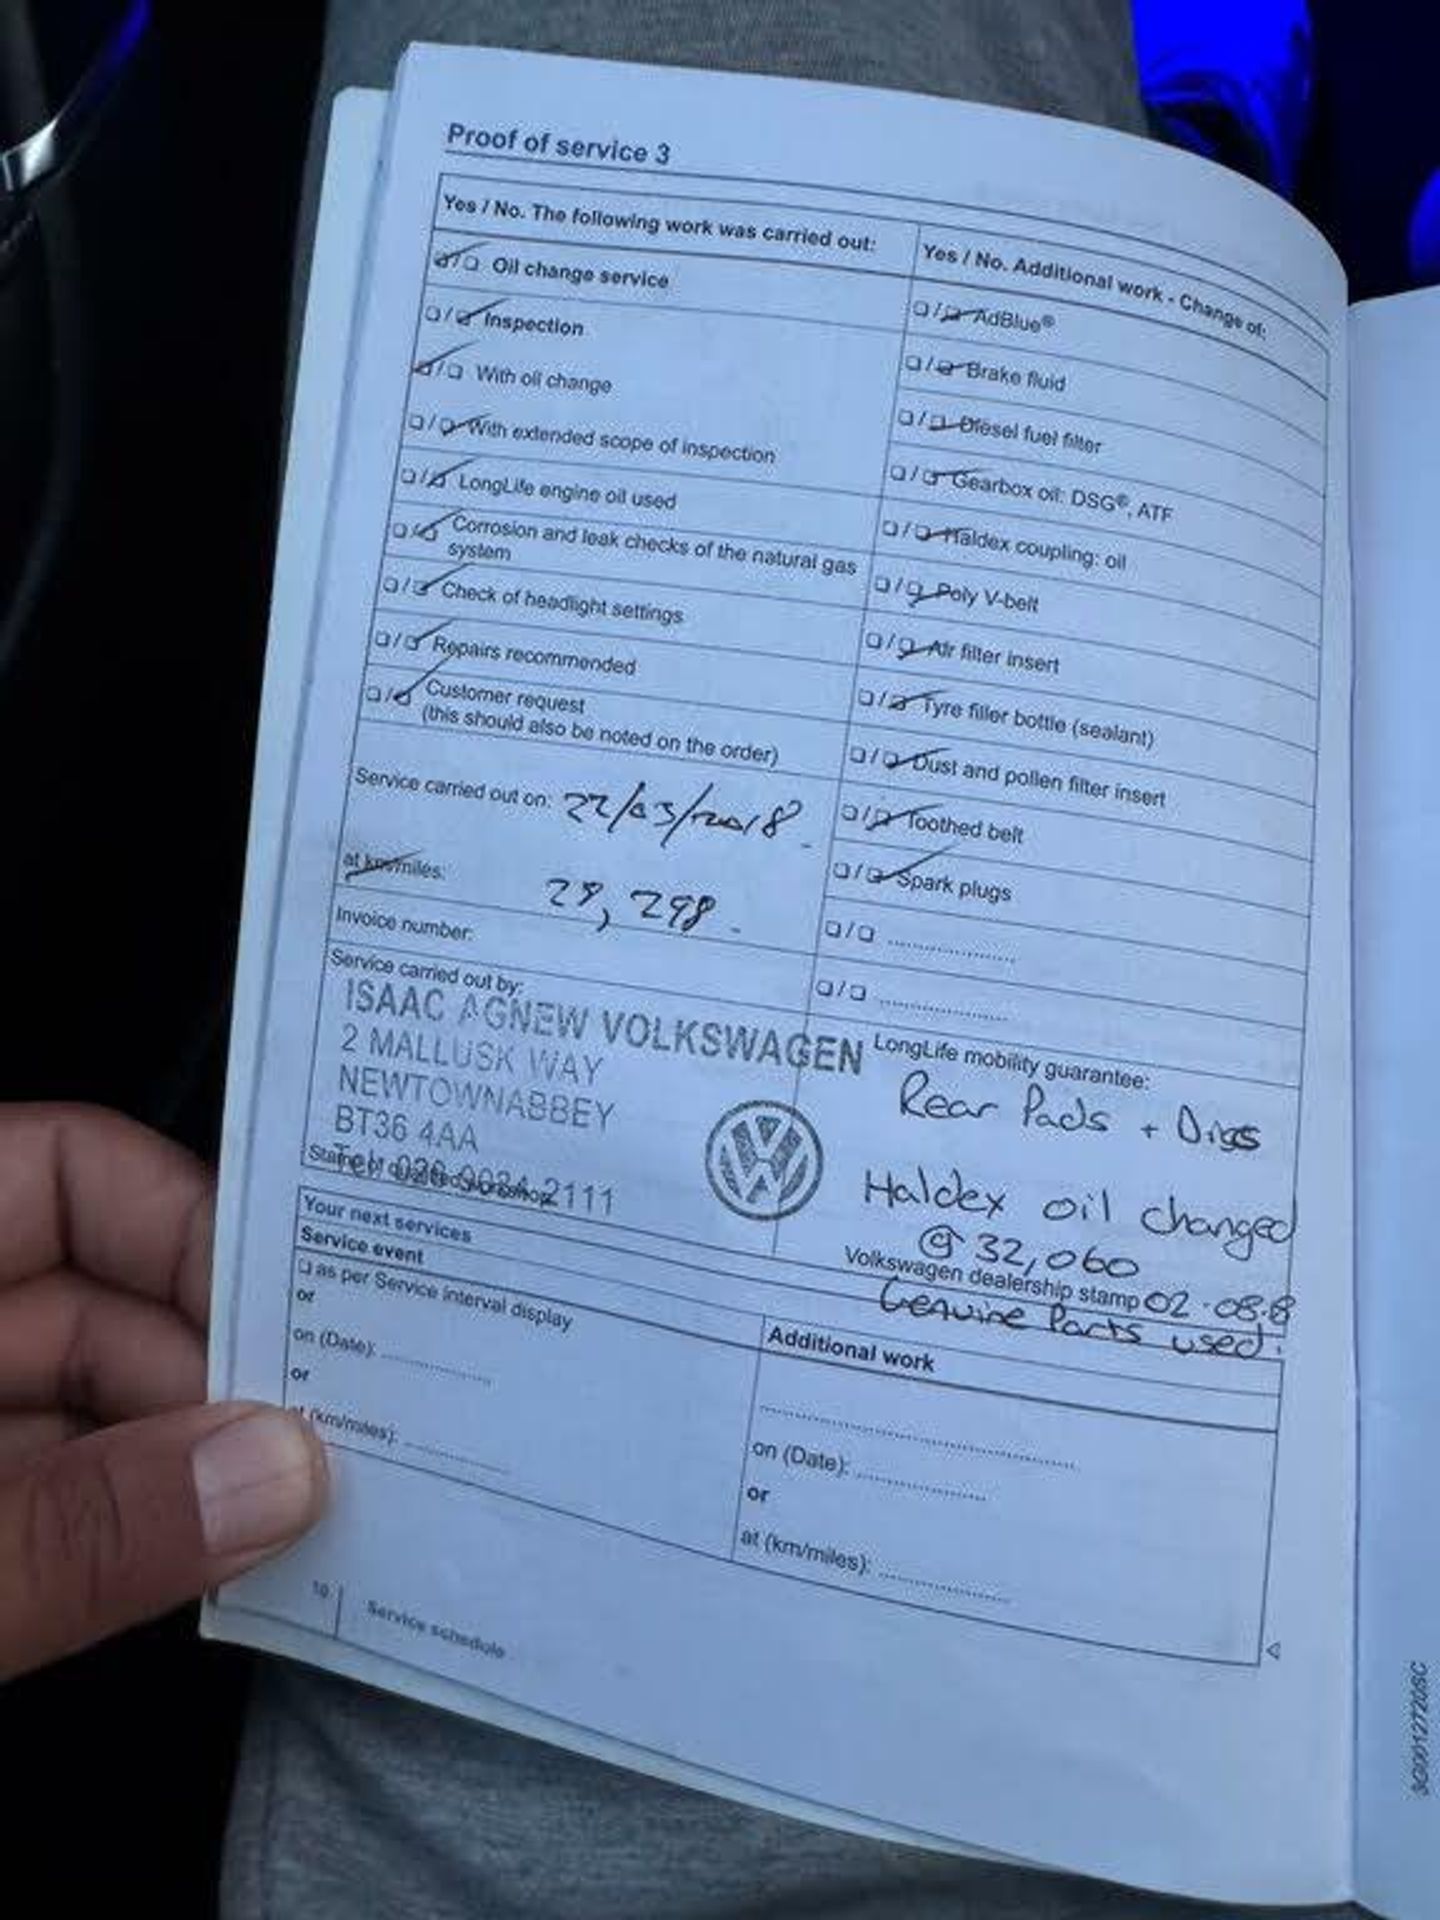 Proof of service 3
Yes / No. The following work was carried out:
❏/❏ Oil change service
❏/❏ Inspection
❏/❏ With oil change
❏/❏ With extended scope of inspection
❏/❏ LongLife engine oil used
❏/❏ Corrosion and leak checks of the natural gas
system
❏/❏ Check of headlight settings
❏/❏ Repairs recommended
❏/❏ Customer request
(this should also be noted on the order)
Service carried out on: 22/03/2018
at km/miles: 29,298
Invoice number:
Service carried out by:
ISAAC AGNEW VOLKSWAGEN
2 MALLUSK WAY
NEWTOWNABBEY
BT36 4AA
Tel: 028 9034 2111
Stamp of qualified workshop
Yes / No. Additional work - Change of:
❏/❏ AdBlue®
❏/❏ Brake fluid
❏/❏ Diesel fuel filter
❏/❏ Gearbox oil: DSG®, ATF
❏/❏ Haldex coupling: oil
❏/❏ Poly V-belt
❏/❏ Air filter insert
❏/❏ Tyre filler bottle (sealant)
❏/❏ Dust and pollen filter insert
❏/❏ Toothed belt
❏/❏ Spark plugs
❏/❏ ....................
❏/❏ ....................
LongLife mobility guarantee:
Rear Pads + Discs
Haldex oil changed
@ 32,060
Volkswagen dealership stamp 02.08.8
Genuine Parts used.
Your next services
Service event
❏ as per Service interval display
or
on (Date): ..................
or
at (km/miles): ..................
Additional work
..................................................
on (Date): ....................
or
at (km/miles): ....................
10 Service schedule